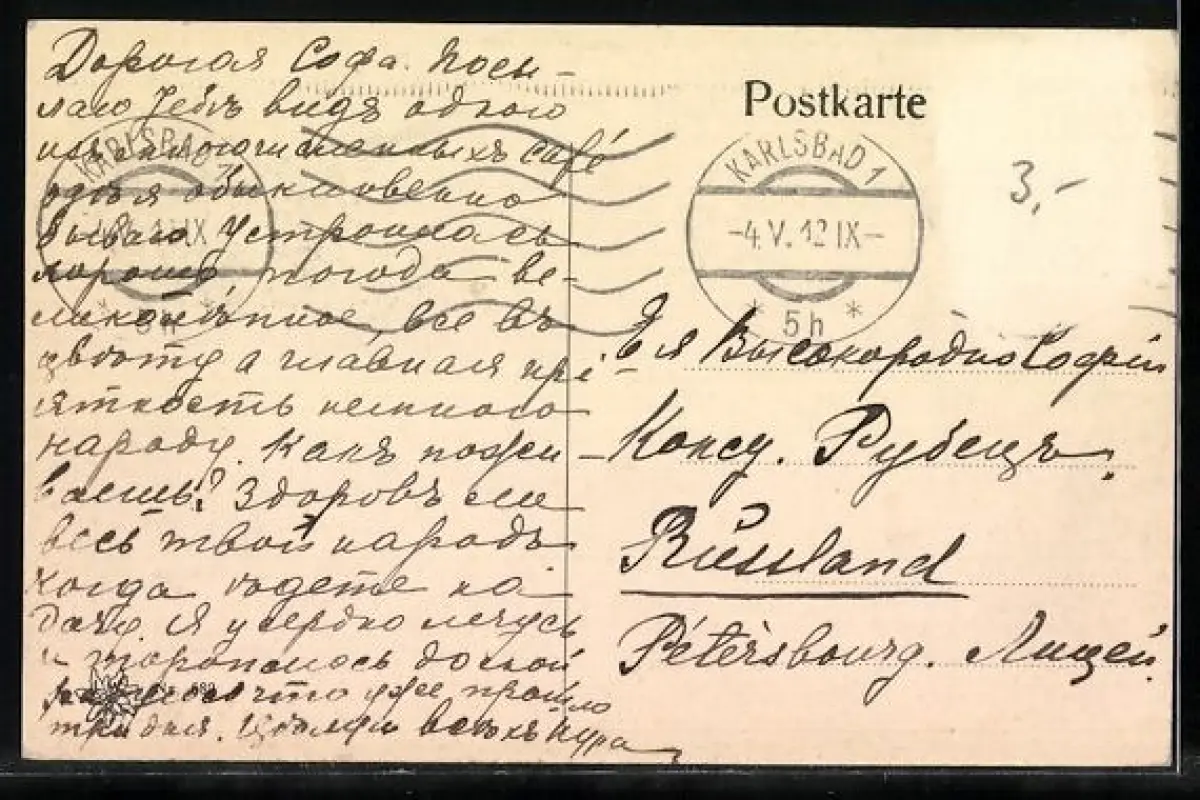 Дорогая Софа. Посы-
лаю Тебѣ видъ одного
изъ многочисленныхъ café
гдѣ я обыкновенно
бываю. Устроилась
хорошо, погода ве-
ликолѣпная, все въ
цвѣту а главная прі-
ятность немного
народу. Какъ пожи-
ваешь? Здоровъ ли
весь твой народъ
когда ѣдете на
дачу. Я усердно лечусь
и тороплюсь домой
что уже прошло
три дня. Цѣлую всѣхъ Нура
Postkarte
3,-
KARLSBAD 1
-4.V.12 IX-
* 5h *
KARLSBAD
Ея Высокородію Софіи
Рубецъ.
Russland
Pétersbourg. Лицей.